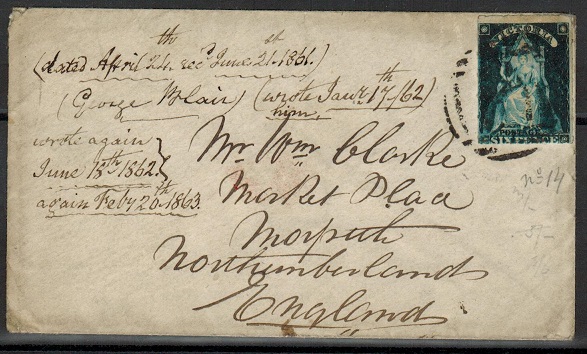 (dated April 24th recd June 21st 1861.)
(George Blair) (wrote Jany 17th/62)
him.
wrote again
June 18th 1862.
again Feby 26th 1863.
Mr Wm Clarke
Market Place
Morpeth
Northumberland
England
VICTORIA
POSTAGE
SIXPENCE
No 14